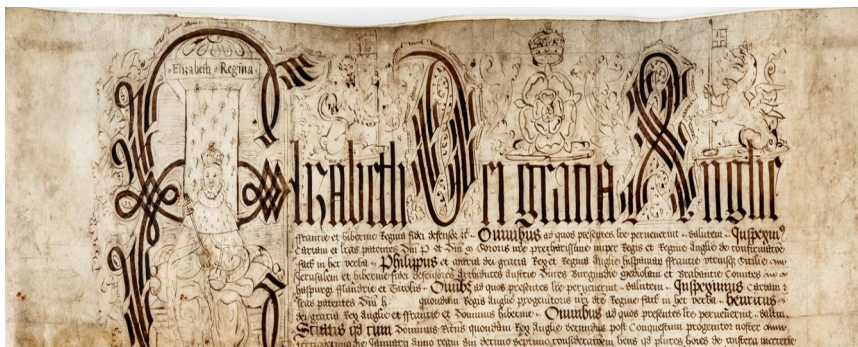 Elizabeth Regina
Elizabeth Dei gratia Anglie
ffrancie et hibernie Regina fidei defensor Omnibus ad quos presentes lre pervenerint salutem Inspeximus
Cartam et lras patentes Dni P et Dne M Sororis nre precharissime nuper Regis et Regine Anglie de confirmatoe
fact in hec verba Philippus et Maria dei gratia Rex et Regina Anglie hispaniar ffrancie utriusque Sicilie
Jerusalem et hibernie fidei defensores Archiduces Austrie Duces Burgundie Mediolani et Brabantie Comites
haspurgi fflandrie et Tirolis Omibz ad quos presentes lre pervenerint salutem Inspeximus Cartam
lras patentes Dni h quondam Regis Anglie progenitoris nri dce Regine fact in hec verba henricus
dei gratia Rex Anglie et ffrancie et Dominus hibernie Omnibus ad quos presentes lre pervenerint saltm
Dominus quondam Rex Anglie secundus post Conquestum progenitor noster
die Januarii anno regni sui decimo septimo quod plures